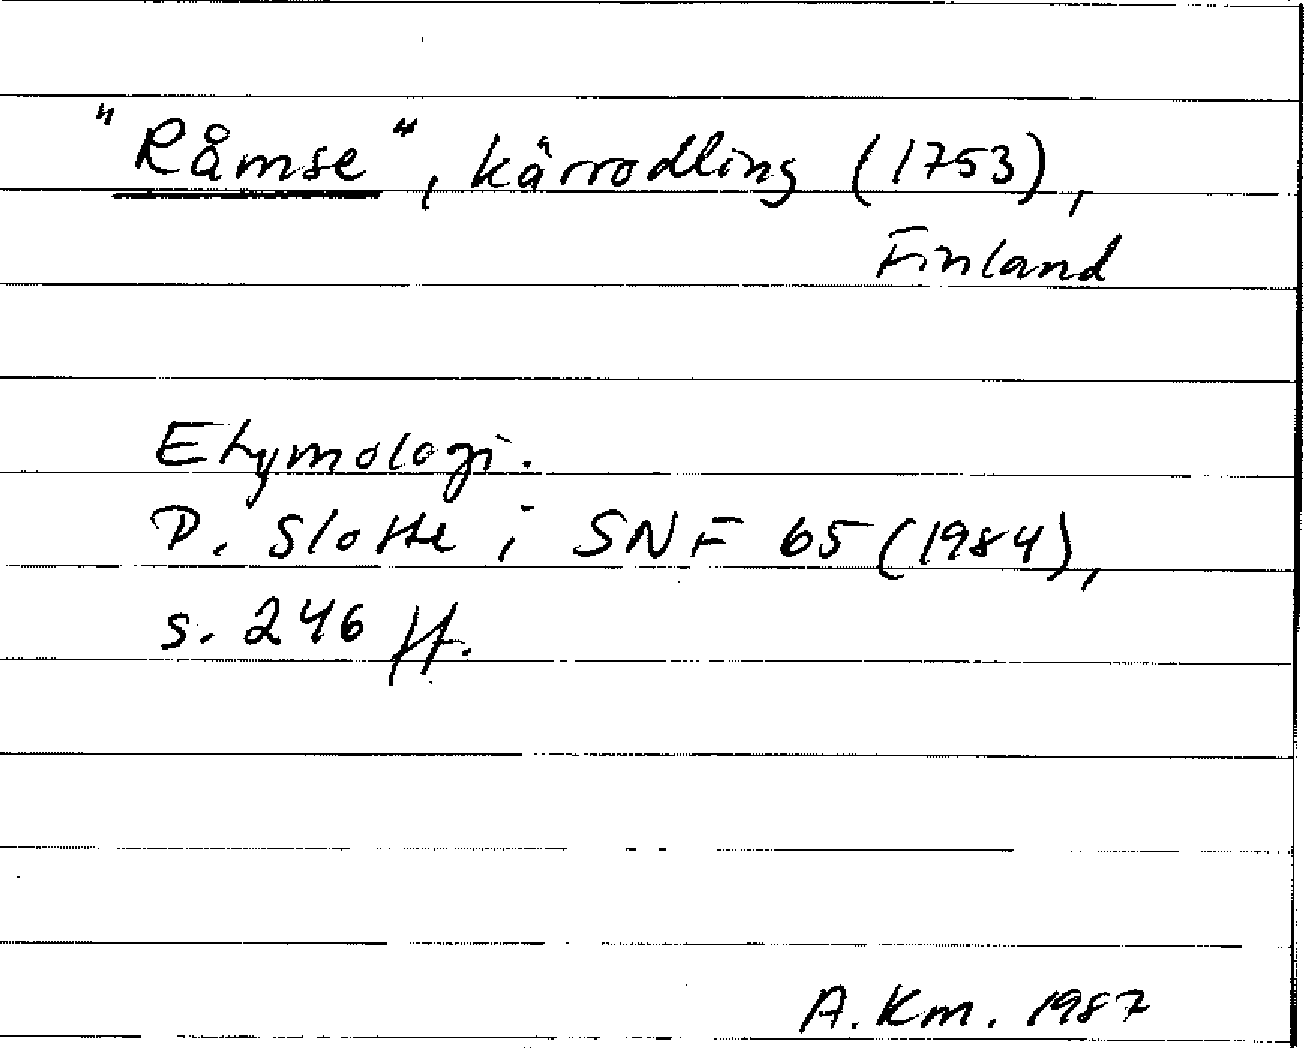 "Råmse", kärrodling (1753),
Finland
Etymologi.
P. Slotte i SNF 65 (1984),
s. 246 ff.
A. Km. 1987